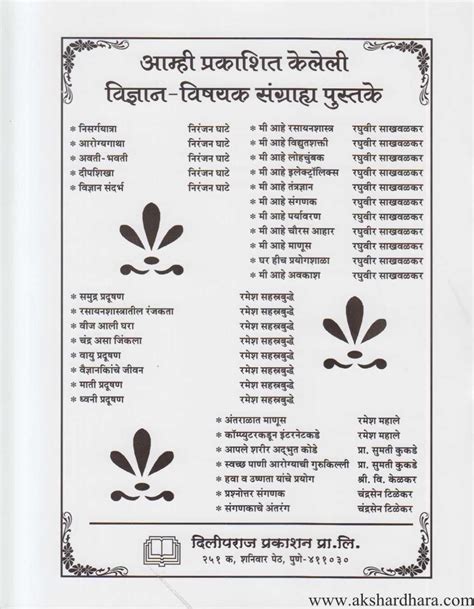 आम्ही प्रकाशित केलेली
विज्ञान-विषयक संग्राह्य पुस्तके
* निसर्गयात्रा निरंजन घाटे
* आरोग्यगाथा निरंजन घाटे
* अवती-भवती निरंजन घाटे
* दीपशिखा निरंजन घाटे
* विज्ञान संदर्भ निरंजन घाटे
* मी आहे रसायनशास्त्र रघुवीर साखवळकर
* मी आहे विद्युतशक्ती रघुवीर साखवळकर
* मी आहे लोहचुंबक रघुवीर साखवळकर
* मी आहे इलेक्ट्रॉलिक्स रघुवीर साखवळकर
* मी आहे तंत्रज्ञान रघुवीर साखवळकर
* मी आहे संगणक रघुवीर साखवळकर
* मी आहे पर्यावरण रघुवीर साखवळकर
* मी आहे चौरस आहार रघुवीर साखवळकर
* मी आहे माणूस रघुवीर साखवळकर
* घर हीच प्रयोगशाळा रघुवीर साखवळकर
* मी आहे अवकाश रघुवीर साखवळकर
* समुद्र प्रदूषण रमेश सहस्रबुद्धे
* रसायनशास्त्रातील रंजकता रमेश सहस्रबुद्धे
* वीज आली घरा रमेश सहस्रबुद्धे
* चंद्र असा जिंकला रमेश सहस्रबुद्धे
* वायु प्रदूषण रमेश सहस्रबुद्धे
* वैज्ञानिकांचे जीवन रमेश सहस्रबुद्धे
* माती प्रदूषण रमेश सहस्रबुद्धे
* ध्वनी प्रदूषण रमेश सहस्रबुद्धे
* अंतराळात माणूस रमेश महाले
* कॉम्प्युटरकडून इंटरनेटकडे रमेश महाले
* आपले शरीर अद्भुत कोडे प्रा. सुमती कुकडे
* स्वच्छ पाणी आरोग्याची गुरुकिल्ली प्रा. सुमती कुकडे
* हवा व उष्णता यांचे प्रयोग श्री. वि. केळकर
* प्रश्नोत्तर संगणक चंद्रसेन टिळेकर
* संगणकाचे अंतरंग चंद्रसेन टिळेकर
दिलीपराज प्रकाशन प्रा.लि.
२५१ क, शनिवार पेठ, पुणे-४११०३०
www.akshardhara.com